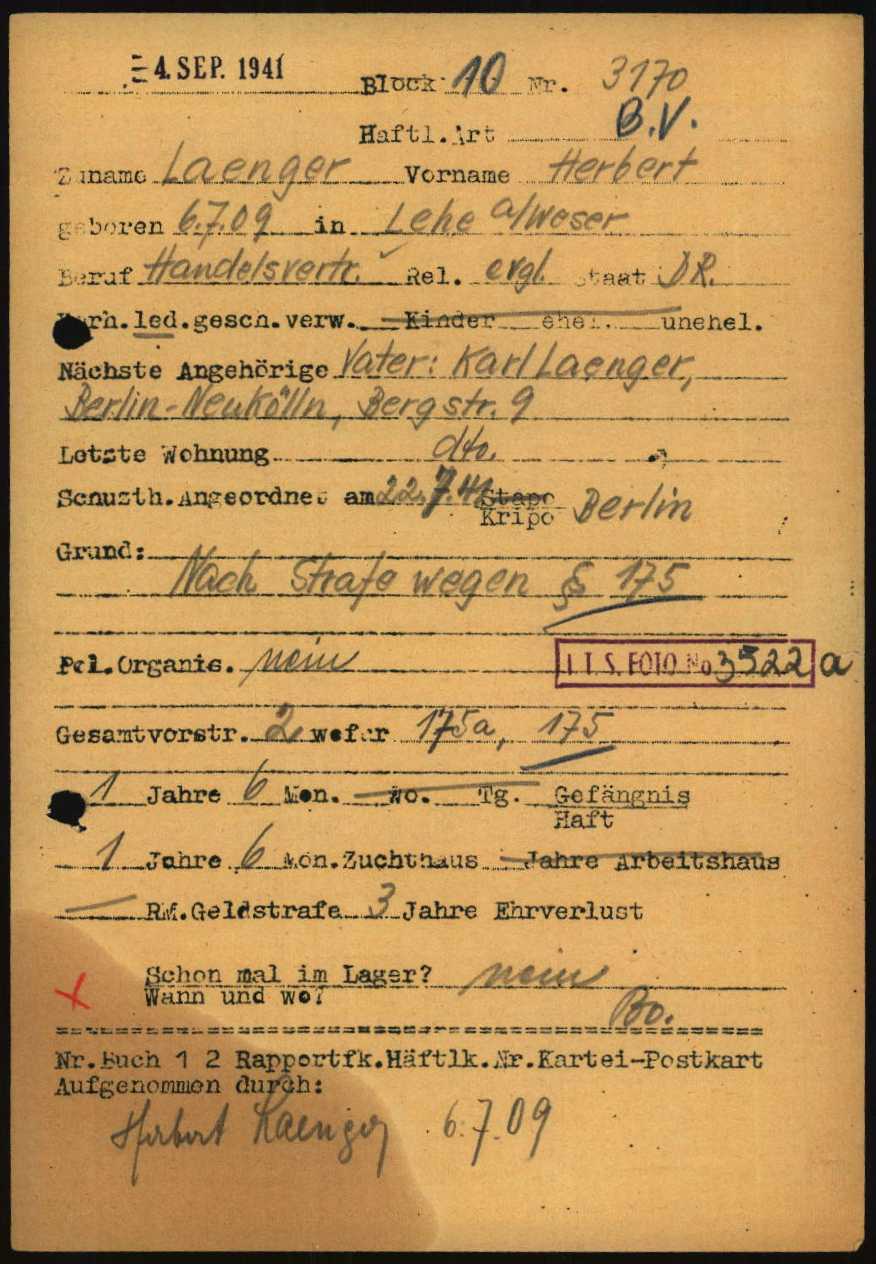 4. SEP. 1941
Block 10 Nr. 3170
Haftl.Art B.V.
Zuname Laenger Vorname Herbert
geboren 6.7.09 in Lehe a/Weser
Beruf Handelsvertr. Rel. evgl. Staat DR.
Verh.led.gesch.verw. Kinder ehel. unehel.
Nächste Angehörige Vater: Karl Laenger,
Berlin-Neukölln, Bergstr. 9
Letzte Wohnung dto.
Schuzth.Angeordnet am 22.7.41 Stapo
Kripo Berlin
Grund:
Nach Strafe wegen § 175
Pol.Organis. nein
I.T.S. FOTO No 3522 a
Gesamtvorstr. 2 wefer 175a, 175
1 Jahre 6 Mon. Wo. Tg. Gefängnis
Haft
1 Jahre 6 Mon.Zuchthaus Jahre Arbeitshaus
RM.Geldstrafe 3 Jahre Ehrverlust
Schon mal im Lager? nein
Wann und wo?
Bo.
Nr.Buch 1 2 Rapportfk.Häftlk.Nr.Kartei-Postkart
Aufgenommen durch:
Herbert Laenger 6.7.09